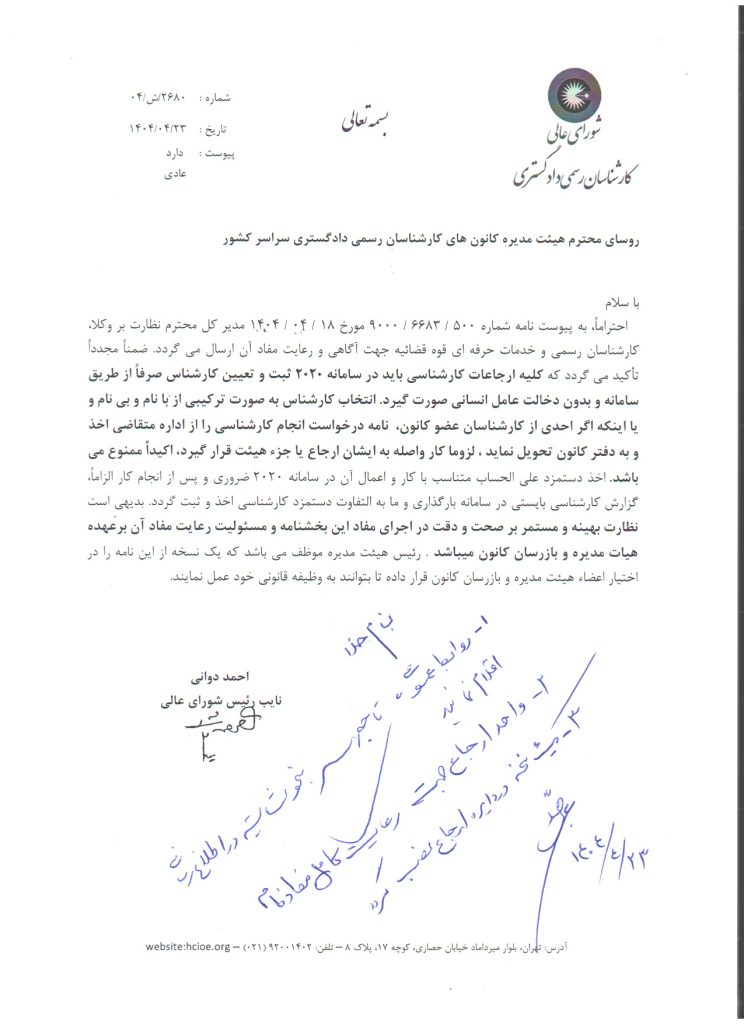 شورای عالی
کارشناسان رسمی دادگستری
بسمه تعالی
شماره : ۲۶۸۰/ش/۰۴
تاریخ : ۱۴۰۴/۰۴/۲۳
پیوست : دارد
عادی
روسای محترم هیئت مدیره کانون های کارشناسان رسمی دادگستری سراسر کشور
با سلام
احتراماً، به پیوست نامه شماره ۵۰۰ / ۶۶۸۳ / ۹۰۰۰ مورخ ۱۸ / ۰۴ / ۱۴۰۴ مدیر کل محترم نظارت بر وکلا،
کارشناسان رسمی و خدمات حرفه ای قوه قضائیه جهت آگاهی و رعایت مفاد آن ارسال می گردد. ضمناً مجدداً
تأکید می گردد که کلیه ارجاعات کارشناسی باید در سامانه ۲۰۲۰ ثبت و تعیین کارشناس صرفاً از طریق
سامانه و بدون دخالت عامل انسانی صورت گیرد. انتخاب کارشناس به صورت ترکیبی از با نام و بی نام و
یا اینکه اگر احدی از کارشناسان عضو کانون، نامه درخواست انجام کارشناسی را از اداره متقاضی اخذ
و به دفتر کانون تحویل نماید ، لزوما کار واصله به ایشان ارجاع یا جزء هیئت قرار گیرد، اکیداً ممنوع می
باشد. اخذ دستمزد علی الحساب متناسب با کار و اعمال آن در سامانه ۲۰۲۰ ضروری و پس از انجام کار الزاماً،
گزارش کارشناسی بایستی در سامانه بارگذاری و ما به التفاوت دستمزد کارشناسی اخذ و ثبت گردد. بدیهی است
نظارت بهینه و مستمر بر صحت و دقت در اجرای مفاد این بخشنامه و مسئولیت رعایت مفاد آن برعهده
هیات مدیره و بازرسان کانون میباشد . رئیس هیئت مدیره موظف می باشد که یک نسخه از این نامه را در
اختیار اعضاء هیئت مدیره و بازرسان کانون قرار داده تا بتوانند به وظیفه قانونی خود عمل نمایند.
احمد دوانی
نایب رئیس شورای عالی
بنام خدا
۱- روابط عمومی
اقدام نمایید
۲- واحد ارجاع جهت رعایت کامل مفاد نامه
۳-
در دایره ارجاع نصب گردد
۱۴۰۴/۴/۲۳
آدرس: تهران، بلوار میرداماد خیابان حصاری، کوچه ۱۷، پلاک ۸ – تلفن: ۹۲۰۰۱۴۰۲ (۰۲۱) – website:hcioe.org